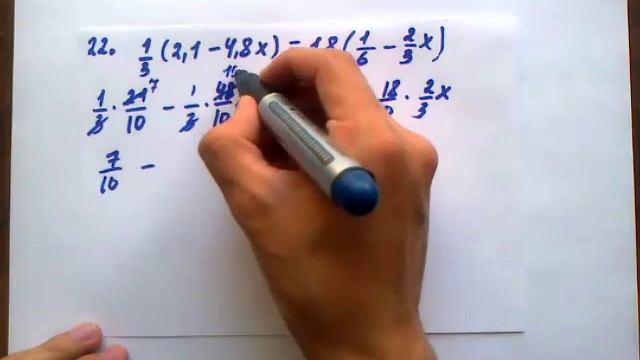 22. 1/3 (2,1 − 4,8x) = 1,8 (1/6 − 2/3 x)
1/3 · 21/10 7 − 1/3 · 48/10 18/10 · 2/3 x
7/10 −